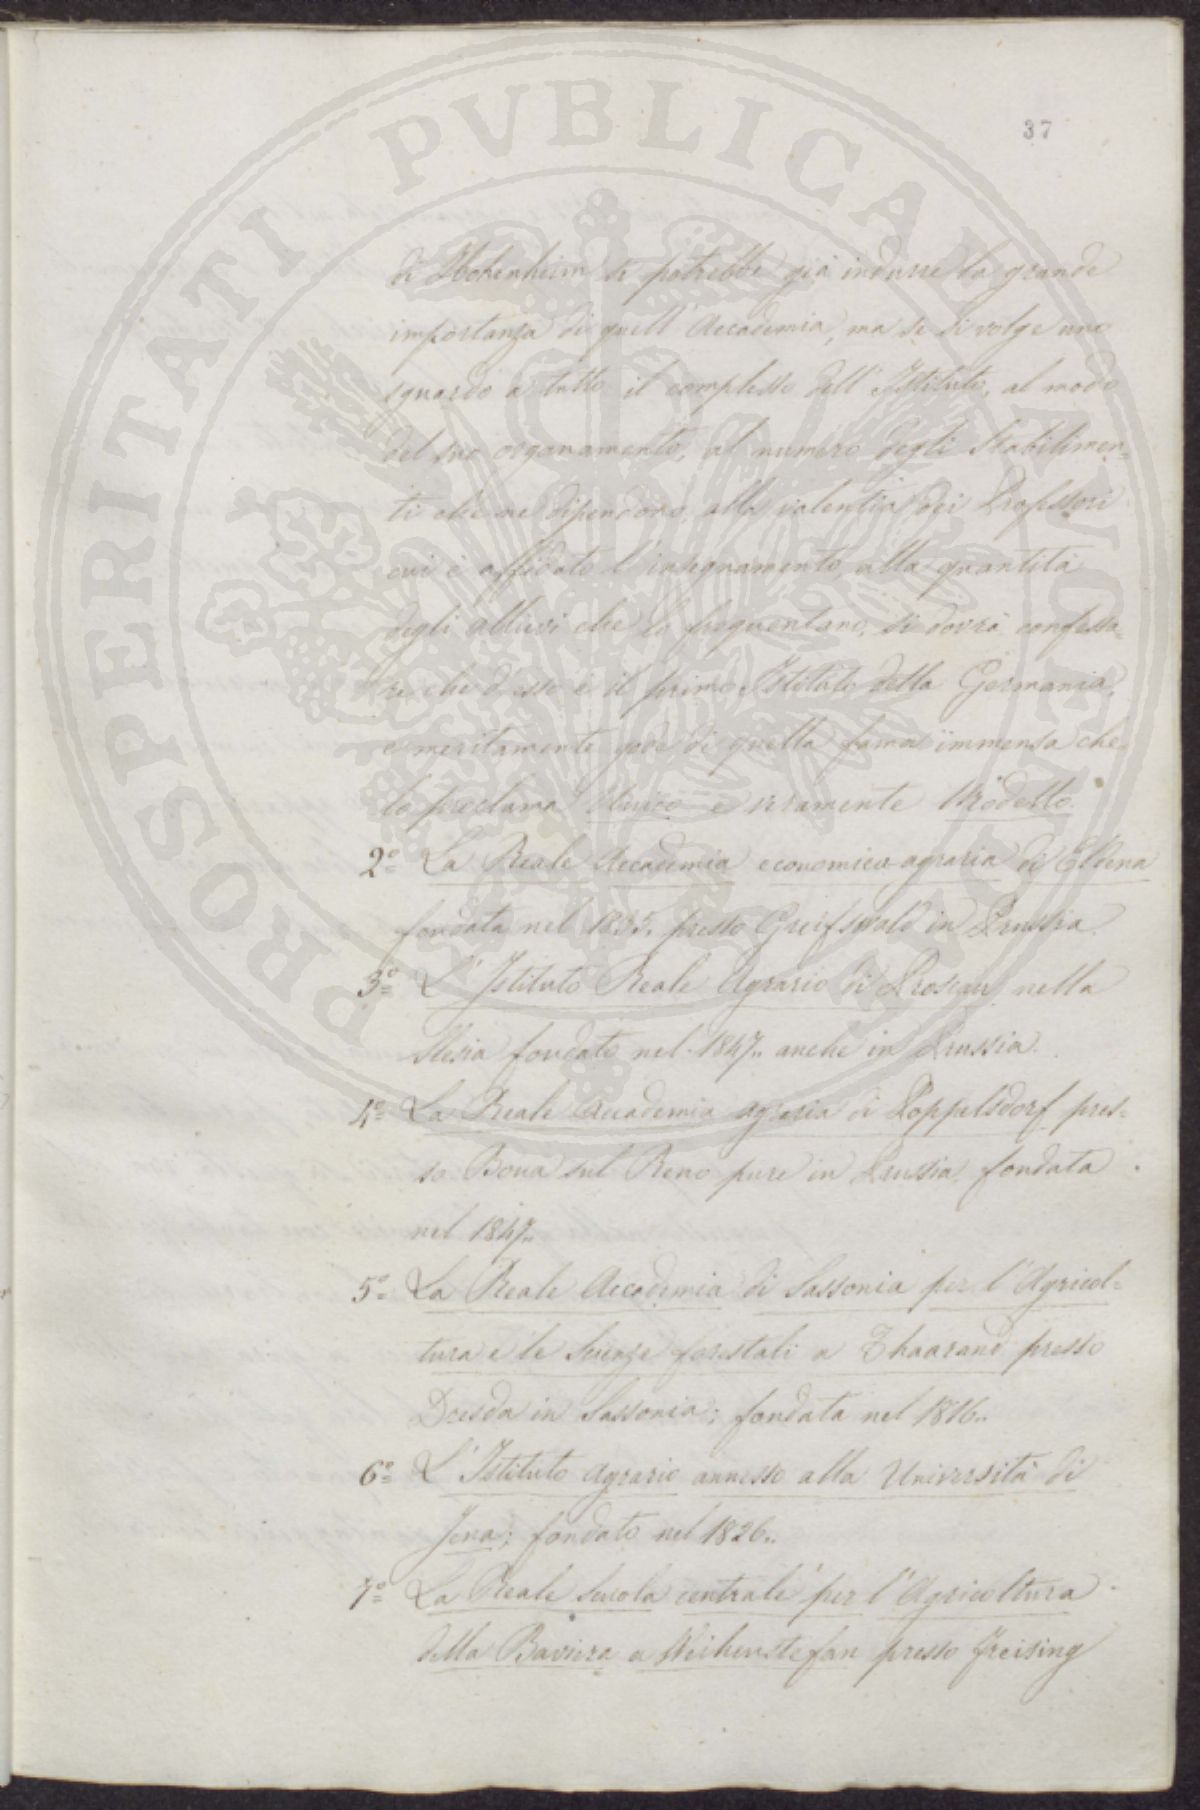 37
di Hohenheim si potrebbe già indurre la grande
importanza di quell' Accademia, ma se si volge uno
sguardo a tutto il complesso dell' Istituto, al modo
del suo organamento, al numero degli Stabilimen=
ti che ne dipendono, alla valentia dei Professori
cui è affidato l'insegnamento, alla quantità
degli allievi che lo frequentano, si dovrà confessa=
re che desso è il primo Istituto della Germania,
e meritamente gode di quella fama immensa che
lo proclama Unico e veramente Modello.
2.° La Reale Accademia economico-agraria di Eldena
fondata nel 1835. presso Greifswald in Prussia.
3.° L' Istituto Reale Agrario di Proscau nella
Slesia fondato nel 1847.. anche in Prussia.
4.° La Reale Accademia agraria di Poppelsdorf pres=
so Bona sul Reno pure in Prussia, fondata
nel 1847..
5.° La Reale Accademia di Sassonia per l'Agricol=
tura e le Scienze forestali a Thaarand presso
Dresda in Sassonia; fondata nel 1816..
6.° L' Istituto agrario annesso alla Università di
Jena; fondato nel 1826..
7.° La Reale Scuola centrale per l'Agricoltura
della Baviera a Weihenstefan presso Freising
PROSPERITATI PVBLICAE AVGENDAE